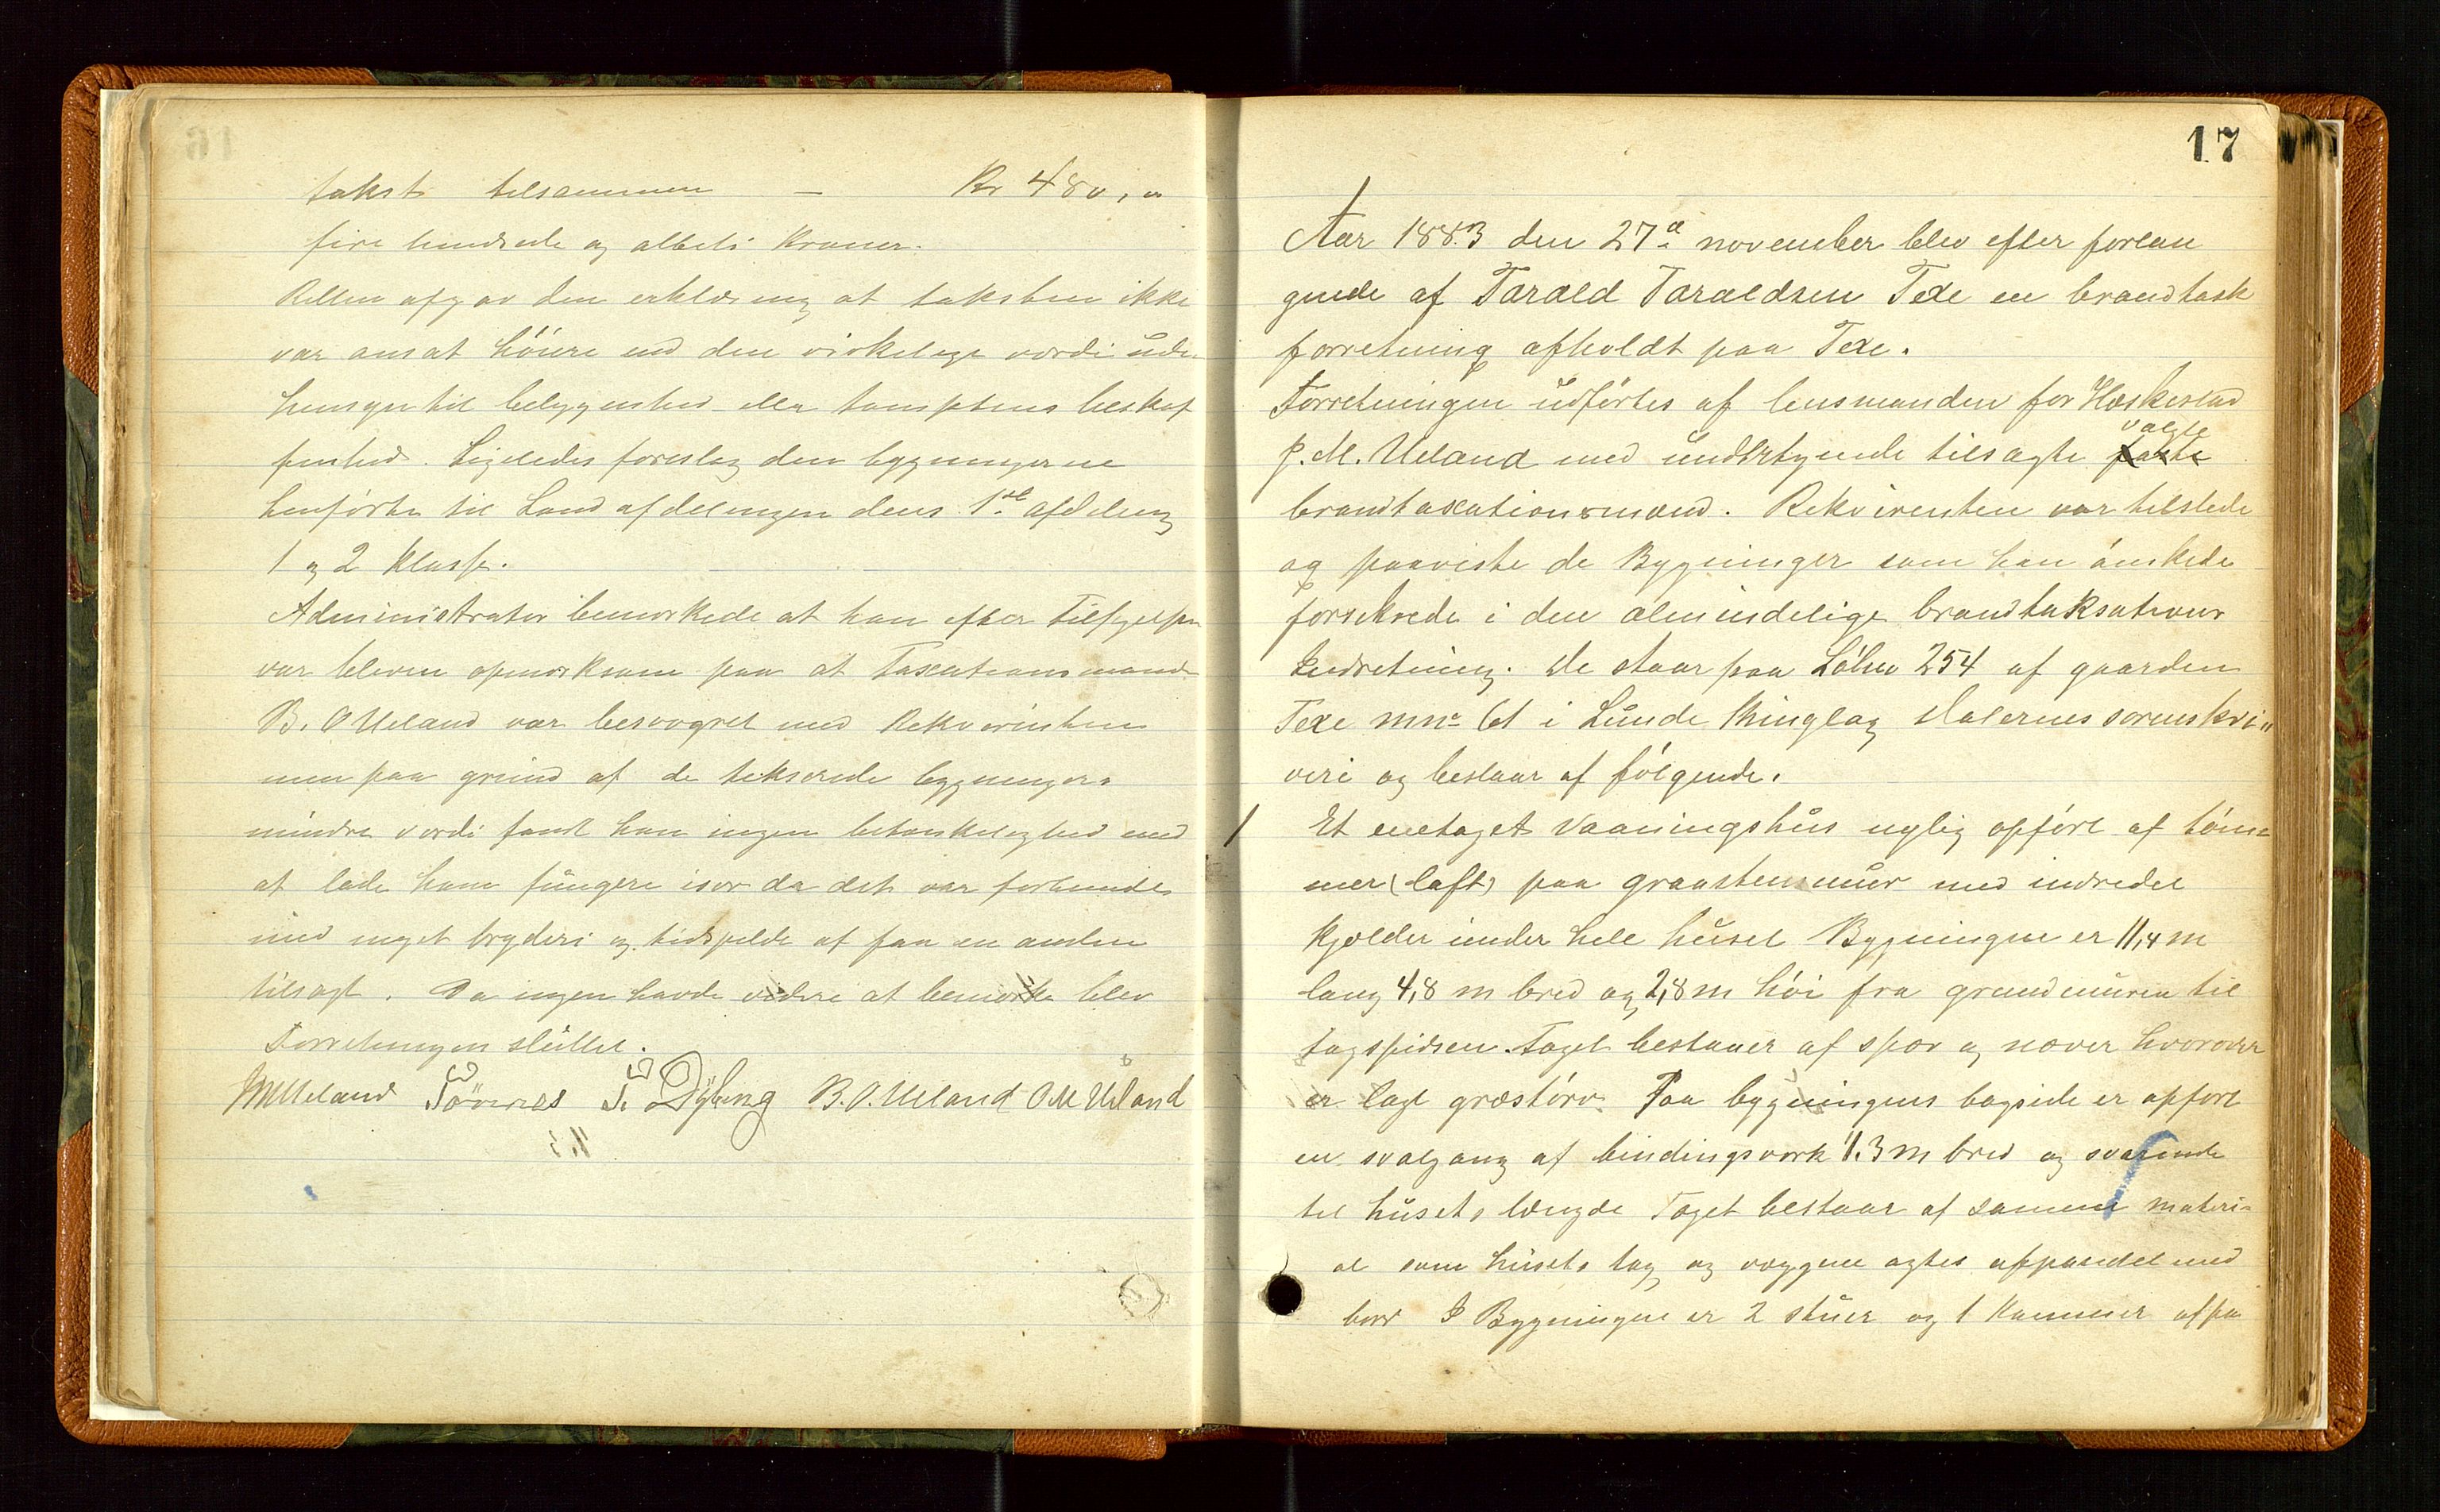 takst tilsammen - Kr 480,00
fire hundrede og otteti Kroner.
Retten afgav den erklæring at taksten ikke
var ansat höiere end den virkelige værdi uden
hensyn til beliggenhed eller tomptens beskaf
fenhed. Ligeledes foreslog den bygningerne
henförte til Landafdelingen dens 1ste afdeling
1 og 2 Klasse.
Administrator bemærkede at han efter
var bleven opmærksom paa at Taxationsmand
B. O Ueland var besvogret med Rekvirenten
men paa grund af de takserede bygningers
mindre værdi fandt han ingen betænkelighed med
at lade ham fungere især da det var forbundet
med meget bryderi og tidsspilde at faa en anden
tilsagt. Da ingen havde videre at bemærke blev
Forretningen sluttet.
JMUeland Tövernes T. Dybing B. O. Ueland O M Ueland
17
Aar 1883 den 27de november blev efter forlan
gende af Tarald Taraldsen Texe en brandtakst
forretning afholdt paa Texe.
Forretningen udförtes af lensmanden for Heskestad
J. M. Ueland med undertegnede tilsagte faste valgte
brandtaxationsmænd. Rekvirenten var tilstede
og paaviste de Bygninger som han önskede
forsikrede i den almindelige brandtaksations
Indretning. De staar paa Löbno 254 af gaarden
Texe mno 61 i Lunde thinglag Dalernes sorenskri"
veri og bestaar af fölgende.
1 Et enetaget Vaaningshus nylig opfört af töm=
mer (laft) paa graastensmur med indredet
Kjelder under hele huset Bygningen er 11,4 m
lang 4,8 m bred og 2,8 m höi fra grundmuren til
tagspidsen. Taget bestaaer af spær og næver hvorover
er lagt græstörv. Paa bygningens bagside er opfört
en svalgang af bindingsværk 1.3 m bred og svarende
til husets længde Taget bestaar af samme materi=
al som husets tag og væggene agtes afpanelet med
bord I Bygningen er 2 stuer og 1 Kammer afpa